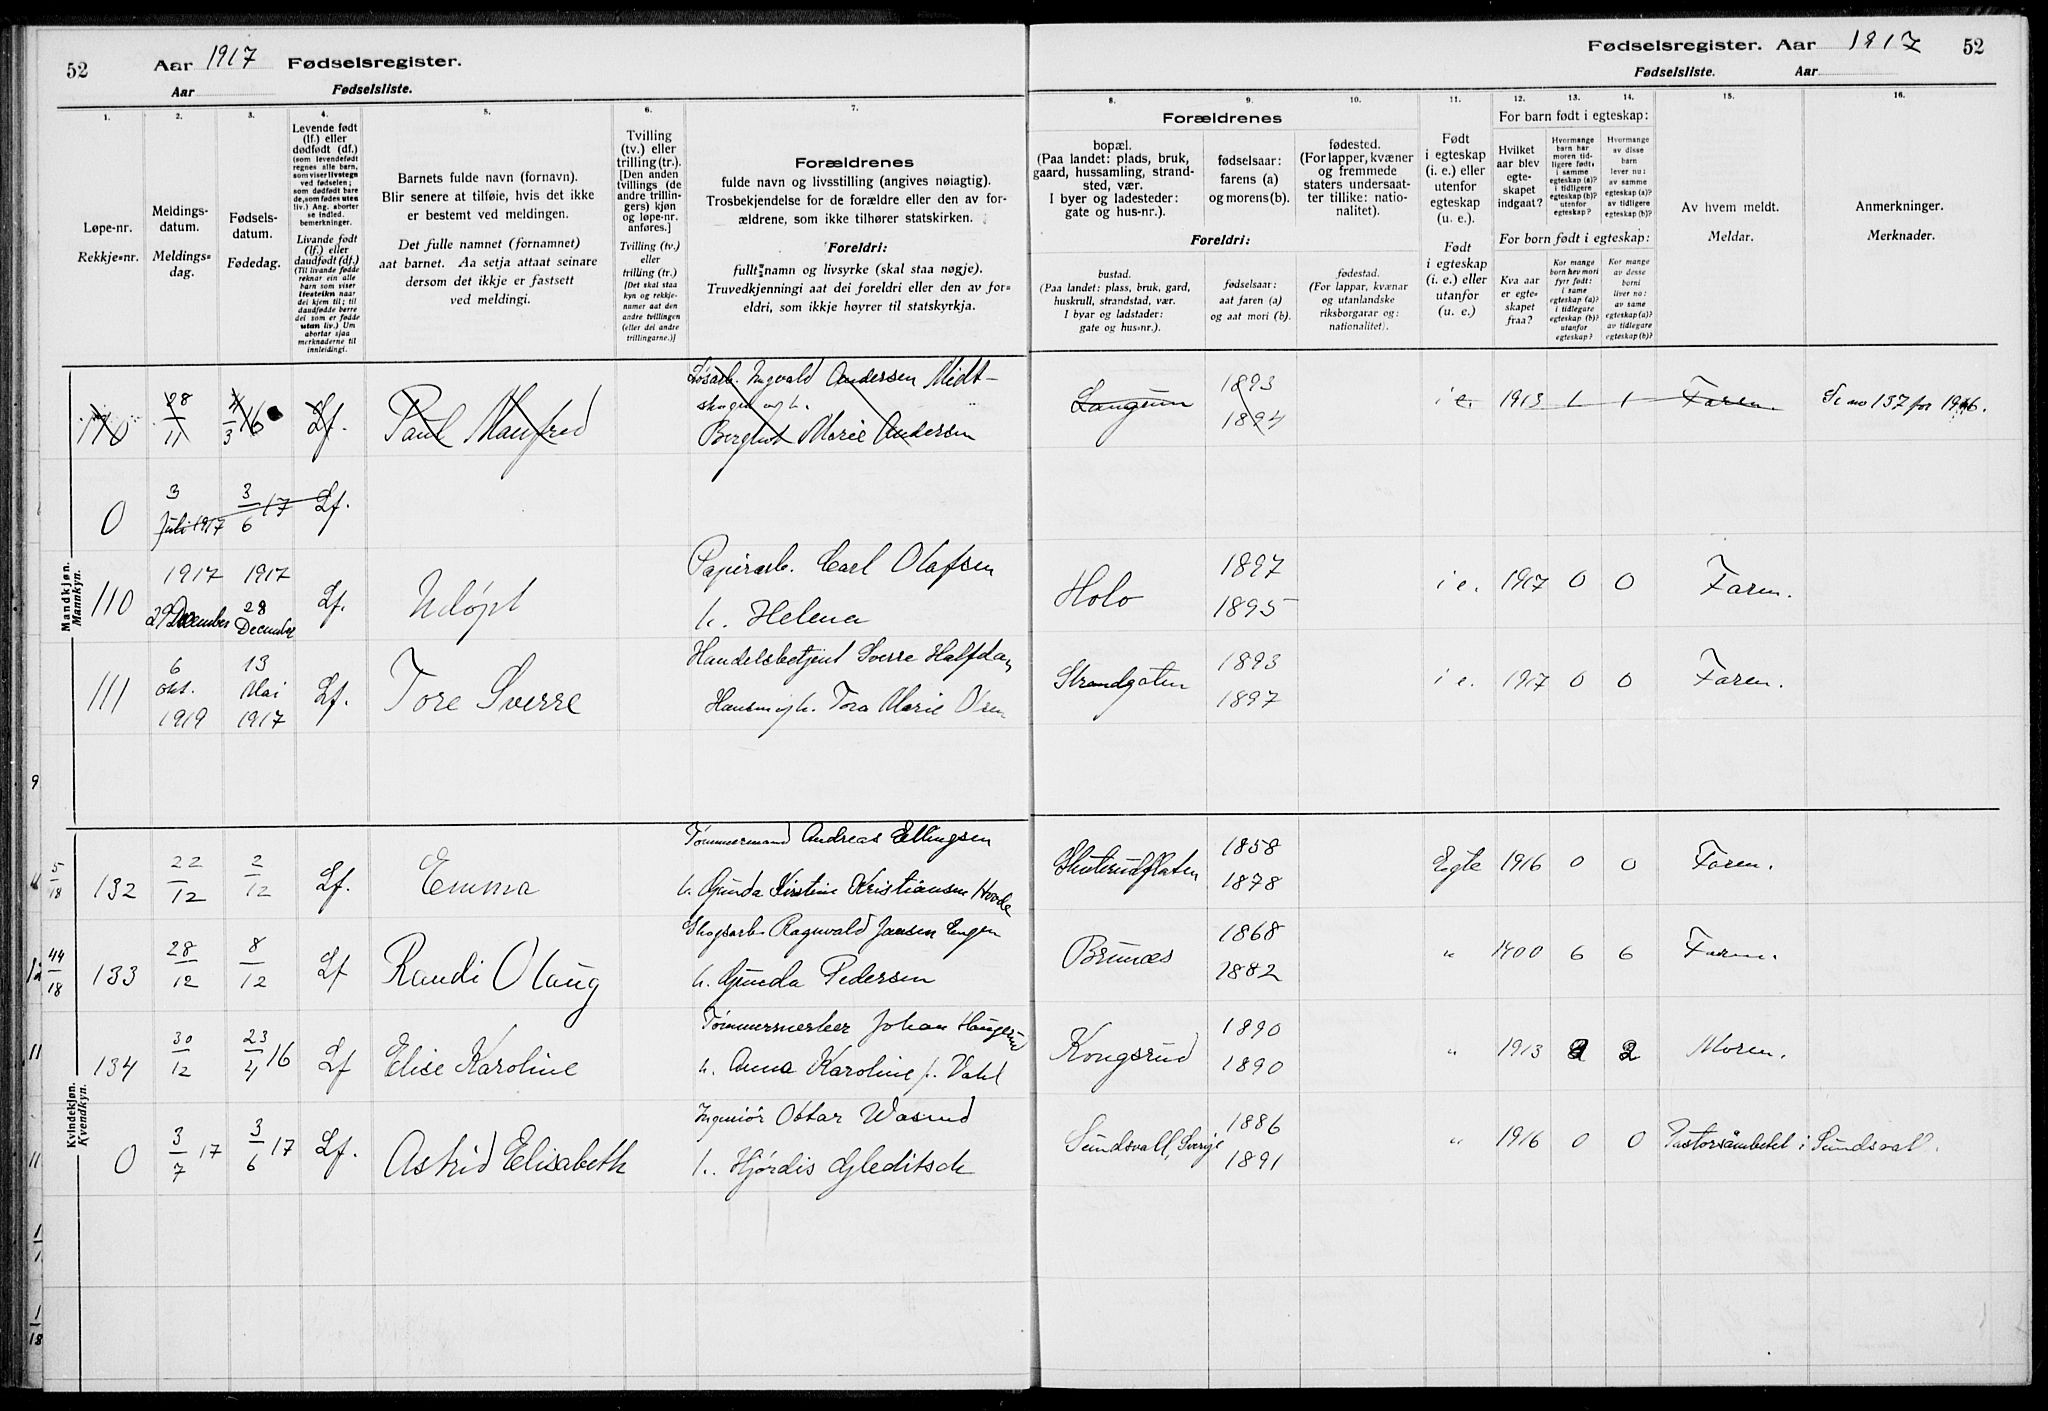 52
Aar 1917 Fødselsregister.
Aar Fødselsliste.
Fødselsregister. Aar 1917 52
Fødselsliste. Aar
1.
Løpe-nr.
Rekkje-nr.
2.
Meldings-
datum.
Meldings-
dag.
3.
Fødsels-
datum.
Fødedag.
4.
Levende født
(lf.) eller
dødfødt (df.)
(som levendefødt
regnes alle barn,
som viser livstegn
ved fødselen;
som dødfødt bare
de, som fødes uten
liv.) Ang. aborter
se indled.
bemerkninger.
Livande født
(lf.) eller
daudfødt (df.)
(Til livande fødde
reknar ein alle
barn som viser
livsteikn naar
dei kjem til; til
daudfødde berre
dei som er fødde
utan liv.) Um
abortar sjaa
merknaderne til
innleidingi.
5.
Barnets fulde navn (fornavn).
Blir senere at tilføie, hvis det ikke
er bestemt ved meldingen.
Det fulle namnet (fornamnet)
aat barnet. Aa setja attaat seinare
dersom det ikkje er fastsett
ved meldingi.
6.
Tvilling
(tv.) eller
trilling (tr.).
[Den anden
tvillings (de
andre trillin-
gers) kjøn
og løpe-nr.
anføres.]
Tvilling (tv.)
eller
trilling (tr.)
[Det skal staa
kyn og rekkje-
numer aat den
andre tvillingen
(eller dei andre
trillingarne.)]
7.
Forældrenes
fulde navn og livsstilling (angives nøiagtig).
Trosbekjendelse for de forældre eller den av for-
ældrene, som ikke tilhører statskirken.
Foreldri:
fullt namn og livsyrke (skal staa nøgje).
Truvedkjenningi aat dei foreldri eller den av for-
eldri, som ikkje høyrer til statskyrkja.
8.
Forældrenes
bopæl.
(Paa landet: plads, bruk,
gaard, hussamling, strand-
sted, vær.
I byer og ladesteder:
gate og hus-nr.).
Foreldri:
bustad.
(Paa landet: plass, bruk, gard,
huskrull, strandstad, vær.
I byar og ladstader:
gate og hus-nr.).
9.
fødselsaar:
farens (a)
og morens (b).
fødselsaar:
aat faren (a)
og aat mori (b).
10.
fødested.
(For lapper, kvæner
og fremmede
staters undersaat-
ter tillike: natio-
nalitet).
fødestad.
(For lappar, kvænar
og utanlandske
riksborgarar og:
nationalitet).
11.
Født
i egteskap
(i. e.) eller
utenfor
egteskap
(u. e.).
Født
i egteskap
(i. e.) eller
utanfor
egteskap
(u. e.)
12. 13. 14.
For barn født i egteskap:
Hvilket
aar blev
egte-
skapet
indgaat?
Hvormange
barn har
moren tid-
ligere født:
i samme
egteskap (a)?
i tidligere
egteskap (b)?
utenfor
egteskap?
Hvormange
av disse
barn
lever nu:
av samme
egteskap (a)?
av tidligere
egteskap (b)?
For born født i egteskap:
Kva aar
er egte-
skapet
fraa?
Kor mange
born hev mori
fyrr født:
i same
egteskap (a)?
i tidlegare
egteskap (b)?
utanfor
egteskap?
Kor mange
av desse
borni
liver no:
av same
egteskap (a)?
av tidlegare
egteskap (b)?
15.
Av hvem meldt.
Meldar.
16.
Anmerkninger.
Merknader.
Mandkjøn.
Mannkyn.
110 28/11 4/3 16 Lf. Paul Manfred
Løsarb. Ingvald Andersen Midt-
skogen og h.
Berglint Marie Andersen
Langum 1893 1894 i e. 1913 1 1 Faren. Se no 137 for 1916.
0 3 Juli 1917 3/6 17 Lf.
110 1917 29 December 1917 28 December Lf. Udøpt
Papirarb. Carl Olafsen
h. Helena
Holo 1897 1895 i e. 1917 0 0 Faren.
111 6 okt. 1919 13 Mai 1917 Lf. Tore Sverre
Handelsbetjent Sverre Halfdan
Hansen og h. Tora Marie Olsen
Strandgaten 1893 1897 i e. 1917 0 0 Faren.
5/18 132 22/12 2/12 Lf. Emma
Tømmermand Andreas Ellingsen
h. Gunda Kirstine Kristiansen Hovde
Skuterudflaten 1858 1878 Egte 1916 0 0 Faren.
44/18 133 28/12 8/12 Lf Randi Olaug
Skogsarb Ragnvald Jansen Engen
h. Gunda Pedersen
Brunæs 1868 1882 " 1900 6 6 Faren.
134 30/12 23/4 16 Lf Elise Karoline
Tømmermerker Johan Haugerud
h. Anna Karoline f. Dahl
Kongsrud 1890 1890 " 1913 2 2 Moren.
Kvindekjøn.
Kvendkyn.
0 3/7 17 3/6 17 Lf. Astrid Elisabeth
Ingeniør Ottar Wasrud
h. Hjørdis Gleditsch
Sundsvall, Sverige 1886 1891 " 1916 0 0 Pastorsämbetet i Sundsvall.
9
11
11
1/1
1/18